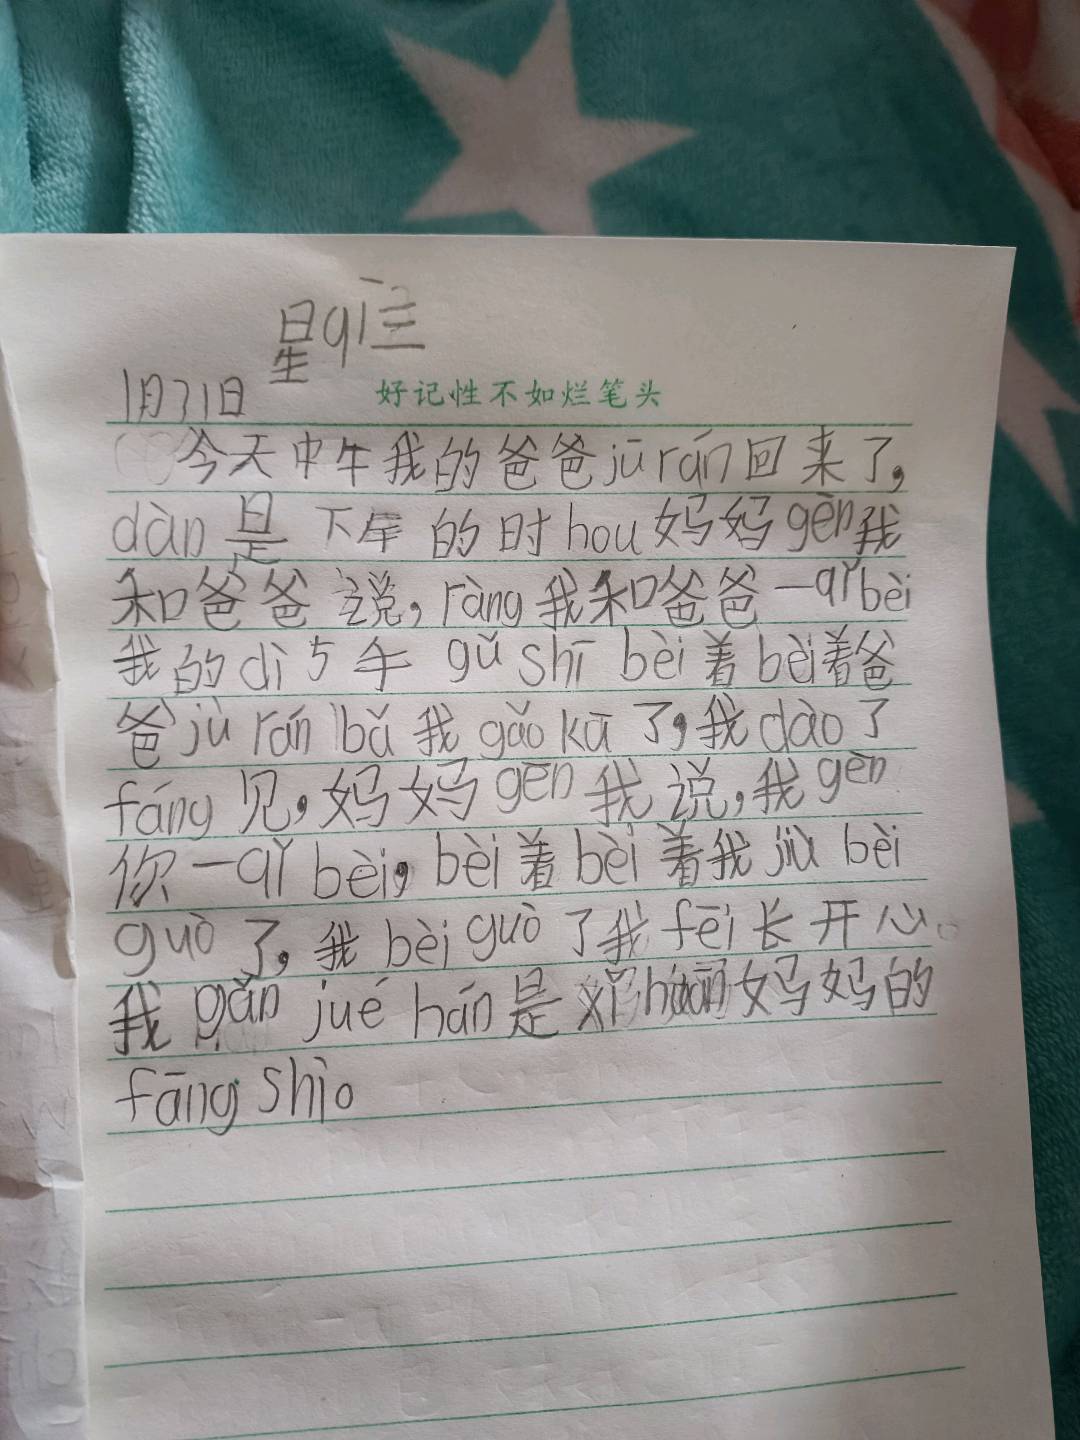 星qī三
好记性不如烂笔头
1月31日
今天中午我的爸爸jūrán回来了,
dàn是下午的时hou妈妈gēn我
和爸爸说,ràng我和爸爸一qǐbèi
我的dì5手gǔshī bèi着bèi着爸
爸jùrán bǎ我gǎokā了,我dào了
fáng见,妈妈gēn我说,我gèn
你一qǐbèi,bèi着bèi着我jiùbèi
guò了,我bèiguò了我fēi长开心。
我gǎnjué hán是xǐhuān妈妈的
fāngshì。